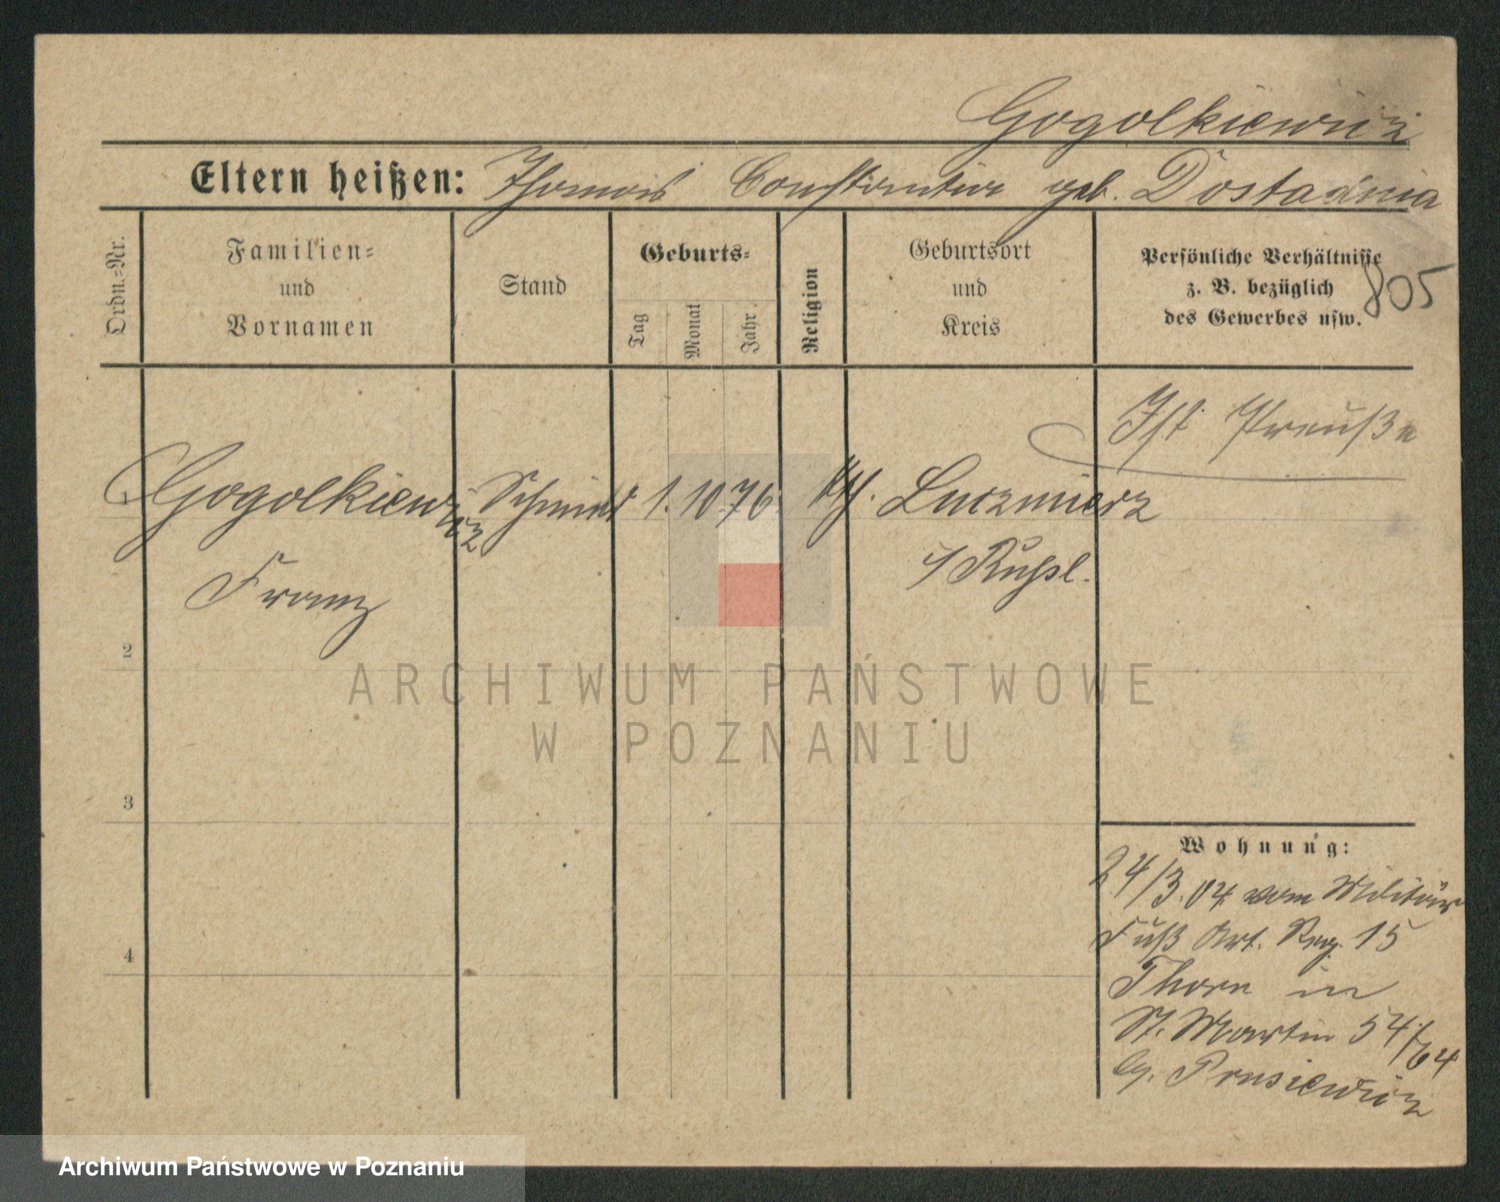 Gogolkiewicz
Eltern heißen: Thomas Constantia geb. Dostadnia
Ordn.=Nr.
Familien=
und
Vornamen
Stand
Geburts=
Tag
Monat
Jahr.
Religion
Geburtsort
und
Kreis
Persönliche Verhältnisse
z. B. bezüglich
des Gewerbes usw.
805
Ist Preuße
Gogolkiewicz Schmied 1. 10 76. kth. Luczmierz
Franz
i/ Rußl.
2
3
4
Wohnung:
24/3.04 vom Militär
Fuß Art. Reg. 15
Thorn in
St. Martin 54/64
b/. Prusiewicz
ARCHIWUM PAŃSTWOWE
W POZNANIU
Archiwum Państwowe w Poznaniu